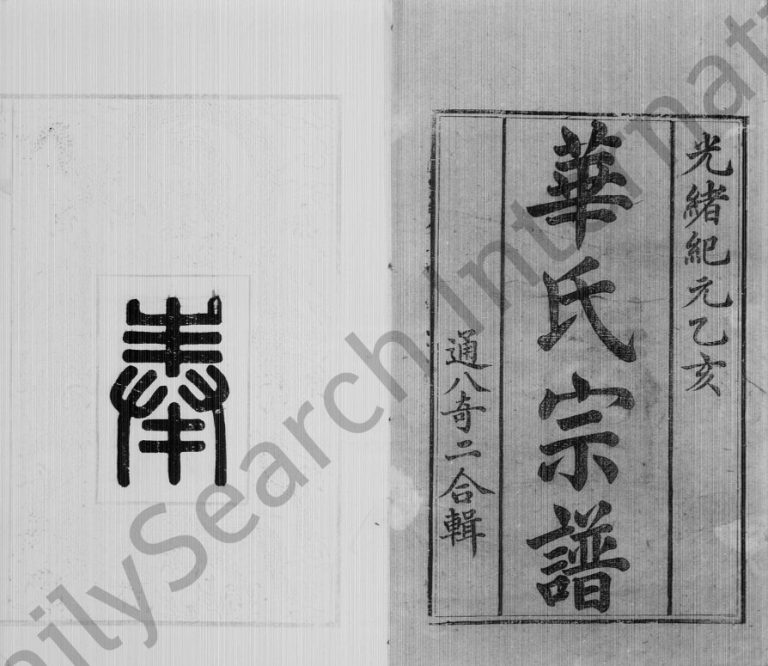 光緒紀元乙亥
華氏宗譜
通八奇二合輯
奉
FamilySearch International